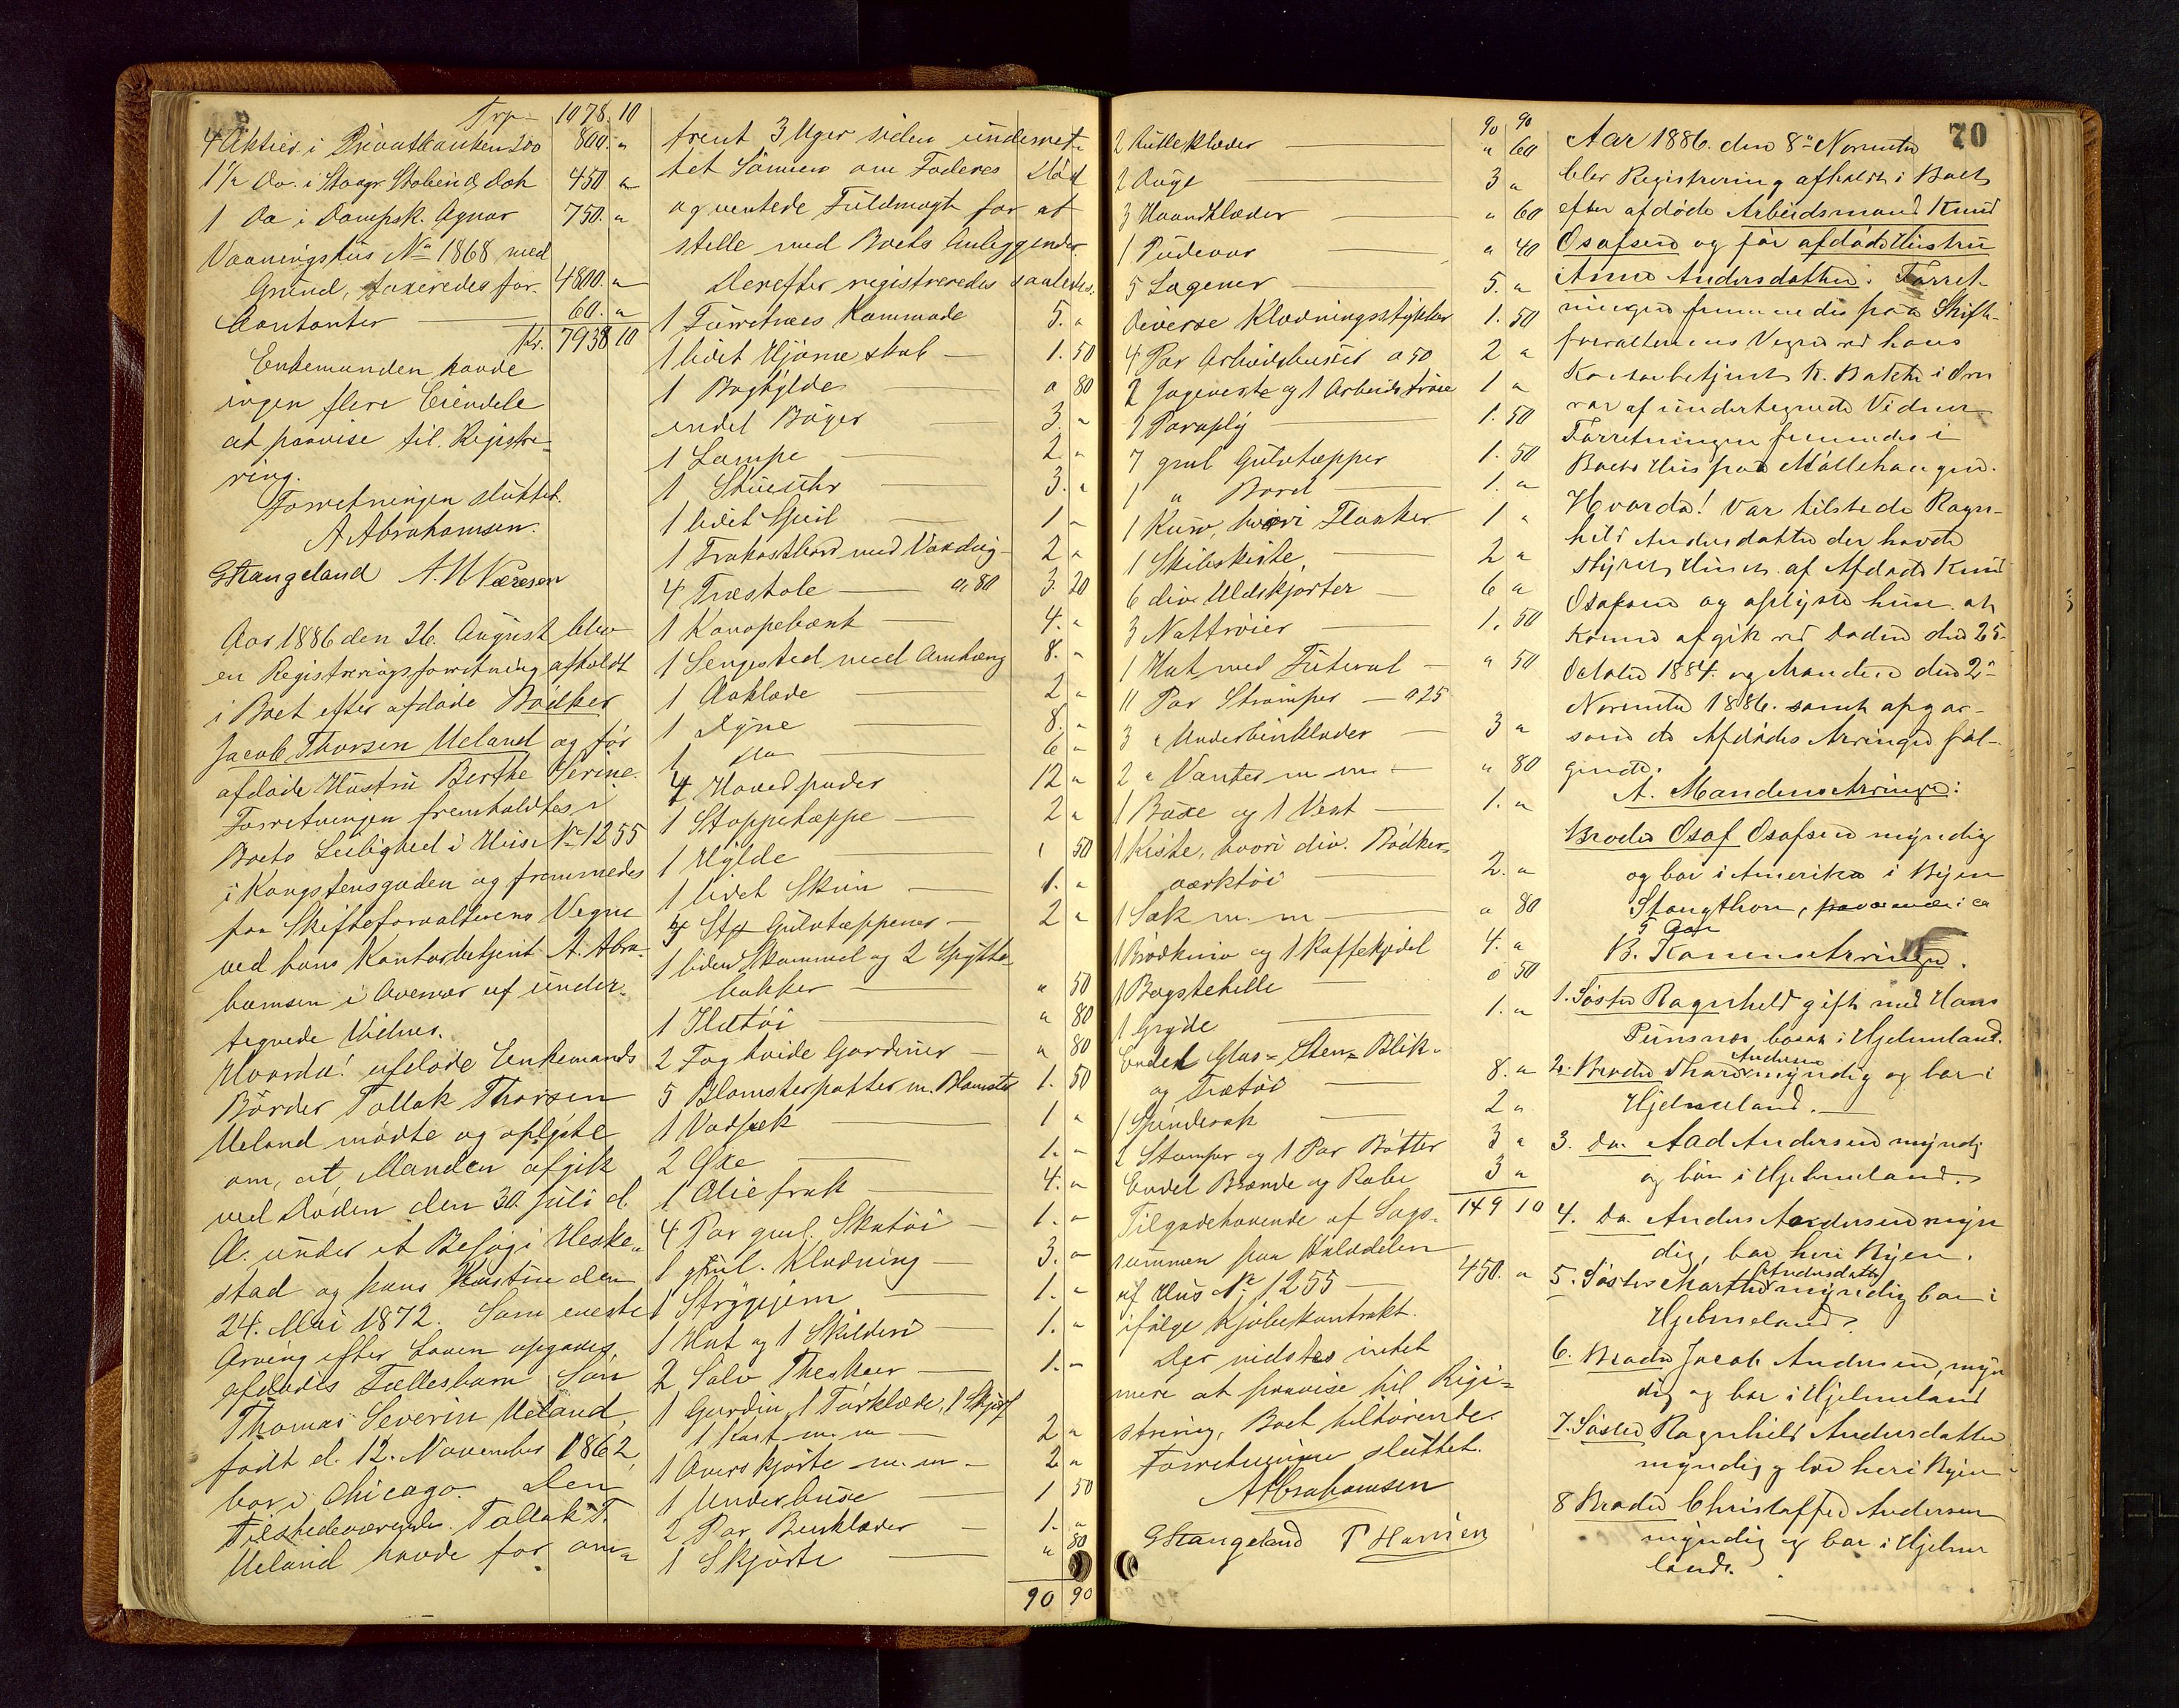 Trp. 1078.10
4 Aktier i Privatbanken 200 800. "
1½ Do. i Stavgr. Støberi & Dok 450 "
1 Do i Dampsk. Agnar 750. "
Vaaningshus No 1868 med
Grund, taxeredes for. 4800. "
Contanter 60. "
Kr. 7938 10
Enkemanden havde
ingen flere Eiendele
at paavise til Registre-
ring.
Forretningen sluttet.
A Abrahamsen.
G Stangeland A. M Næresen
Aar 1886 den 26. August blev
en Registreringsforretning afholdt
i Boet efter afdøde Bødker
Jacob Thorsen Ueland og før
afdøde Hustru Berthe Serine.
Forretningen fremholdtes i
Boets Leilighed i Huset No 1255
i Kongstensgaden og fremmedes
paa Skifteforvalterens Vegne
ved hans Kontorbetjent A. Abra-
hamsen i Overvær af under-
tegnede Vidner.
Hvorda! afdøde Enkemands
Broder Tollak Thorsen
Ueland mødte og oplyste
om, at Manden afgik
ved Døden den 30. Juli d.
A. under et Besøg i Heske-
stad og hans Hustru den
24. Mai 1872. Som eneste
Arving efter Loven opgaves
afdødes Fællesbarn Søn
Thomas Severin Ueland,
født d. 12. November 1862,
bor i Chicago. Den
Tilstedeværende Tollak T.
Ueland havde for om-
trent 3 Uger siden underret-
tet Sønnen om Faderes Død
og ventede Fuldmagt for at
stelle med Boets Anliggender.
Derefter registreredes saaledes:
1 Furretræes Kommode 5. "
1 lidet Hjørneskab 1. 50
1 Boghylde " 80
endel Bøger 3. "
1 Lampe 2. "
1 Stueuhr 3. "
1 lidet Speil 1 "
1 Frokostbord med Voxdug 2 "
4 Træstole a 80 3. 20
1 Kanapebænk 4. "
1 Sengested med Omhæng 8. "
1 Aaklæde 2 "
1 Dyne 8. "
1 do 6 "
4 Hovedpuder 12 "
1 Stoppetæppe 2 "
1 Hylde " 50
1 lidet Skrin 1. "
4 Stk Gulvtæppener 2 "
1 liden Skammel og 2 Spytte-
bakker " 50
1 Ildtøi " 80
2 Fag hvide Gardiner " 80
5 Blomsterpotter m. Blomster 1. 50
1 Vadsæk 1 "
2 Øxe 1. "
1 Oliefrak 4. "
4 Par gml. Skotøi 1. "
1 gml. Klædning 3. "
1 Strygejern 1. "
1 Hat og 1 Skilderi 1. "
2 Sølv Theskeer 1. "
1 Gardin, 1 Tørklæde, 1 Skjørt
1 Kort m. m 2 "
1 Overskjorte m. m 2 "
1 Underbuxe 1 50
2 Par Benklæder 1. "
1 Skjorte " 80
90 90
70
90 90
2 Rulleklæder " 60
2 Duge 3 "
3 Haandklæder " 60
1 Pudevar " 40
5 Lagener 5. "
Diverse Klædningsstykker 1. 50
4 Par Arbeidsbuxer a 50 2 "
2 Jageveste og 1 Arbeidstrøie 1 "
1 Paraply 1. 50
7 gml Gulvtæpper 1. 50
1 " Bord 1. "
1 Kurv, hvori Flasker 1 "
1 Skibskiste 2 "
6 div. Uldskjorter 6 "
3 Nattrøier 1. 50
1 Hat med Futeral " 50
11 Par Strømper a 25
3 " Underbenklæder 3 "
2 " Vanter m m " 80
1 Buxe og 1 Vest 1. "
1 Kiste, hvori div. Bødker-
værktøi 2. "
1 Sæk m. m " 80
1 Brødkurv og 1 Kaffekjedel 4. "
1 Bagstehelle " 50
1 Gryde 1. "
Endel Glas- Sten- Blik-
og Trætøi 8. "
1 Spinderok 2 "
2 Stamper og 1 Par Bøtter 3 "
Endel Brænde og Rabe 3 "
149 10
Tilgodehavende af Salgs-
summen paa Halvdelen
af Hus No 1255 450. "
ifølge Kjøbekontrakt.
Der vidstes intet
mere at paavise til Regi-
strering, Boet tilhørende.
Forretningen sluttet.
A Abrahamsen
G Stangeland P Hansen
Aar 1886. den 8de November
blev Registrering afholdt i Boet
efter afdøde Arbeidsmand Knud
Osafsen og før afdøde Hustru
Anna Andersdatter. Forret-
ningen fremmedes paa Skifte-
forvalterens Vegne ved hans
Kontorbetjent K. Bakke i Over
vær af undertegnede Vidner
Forretningen fremmedes i
Boets Hus paa Møllehaugen.
Hvorda! Var tilstede Ragn-
hild Andersdatter der havde
styret Huset af Afdøde Knud
Osafsen og oplyste hun at
Konen afgik ved Døden den 25-
October 1884. og Manden den 2-
November 1886. samt opgav
som de Afdødes Arvinger føl-
gende.
A. Mandens Arvinger:
Broder Osaf Osafsen myndig
og bor i Amerika i Byen
Stougthon, fraværende i ca
5 Aar
B. Konens Arvinger.
1. Søster Ragnhild gift med Hans
Punsnes, boer i Hjelmeland.
2. Broder Thord Andersen myndig og bor i
Hjelmeland.
3. Do. Aad Andersen myndig
og bor i Hjelmeland.
4. Do. Anders Andersen myn
dig, bor her i Byen.
5. Søster Martha Andersdatter myndig bor i
Hjelmeland.
6. Broder Jacob Andersen, myn
dig og bor i Hjelmeland
7. Søster Ragnhild Andersdatter
myndig og bor her i Byen
8 Broder Christoffer Andersen
myndig og bor i Hjelme
land.